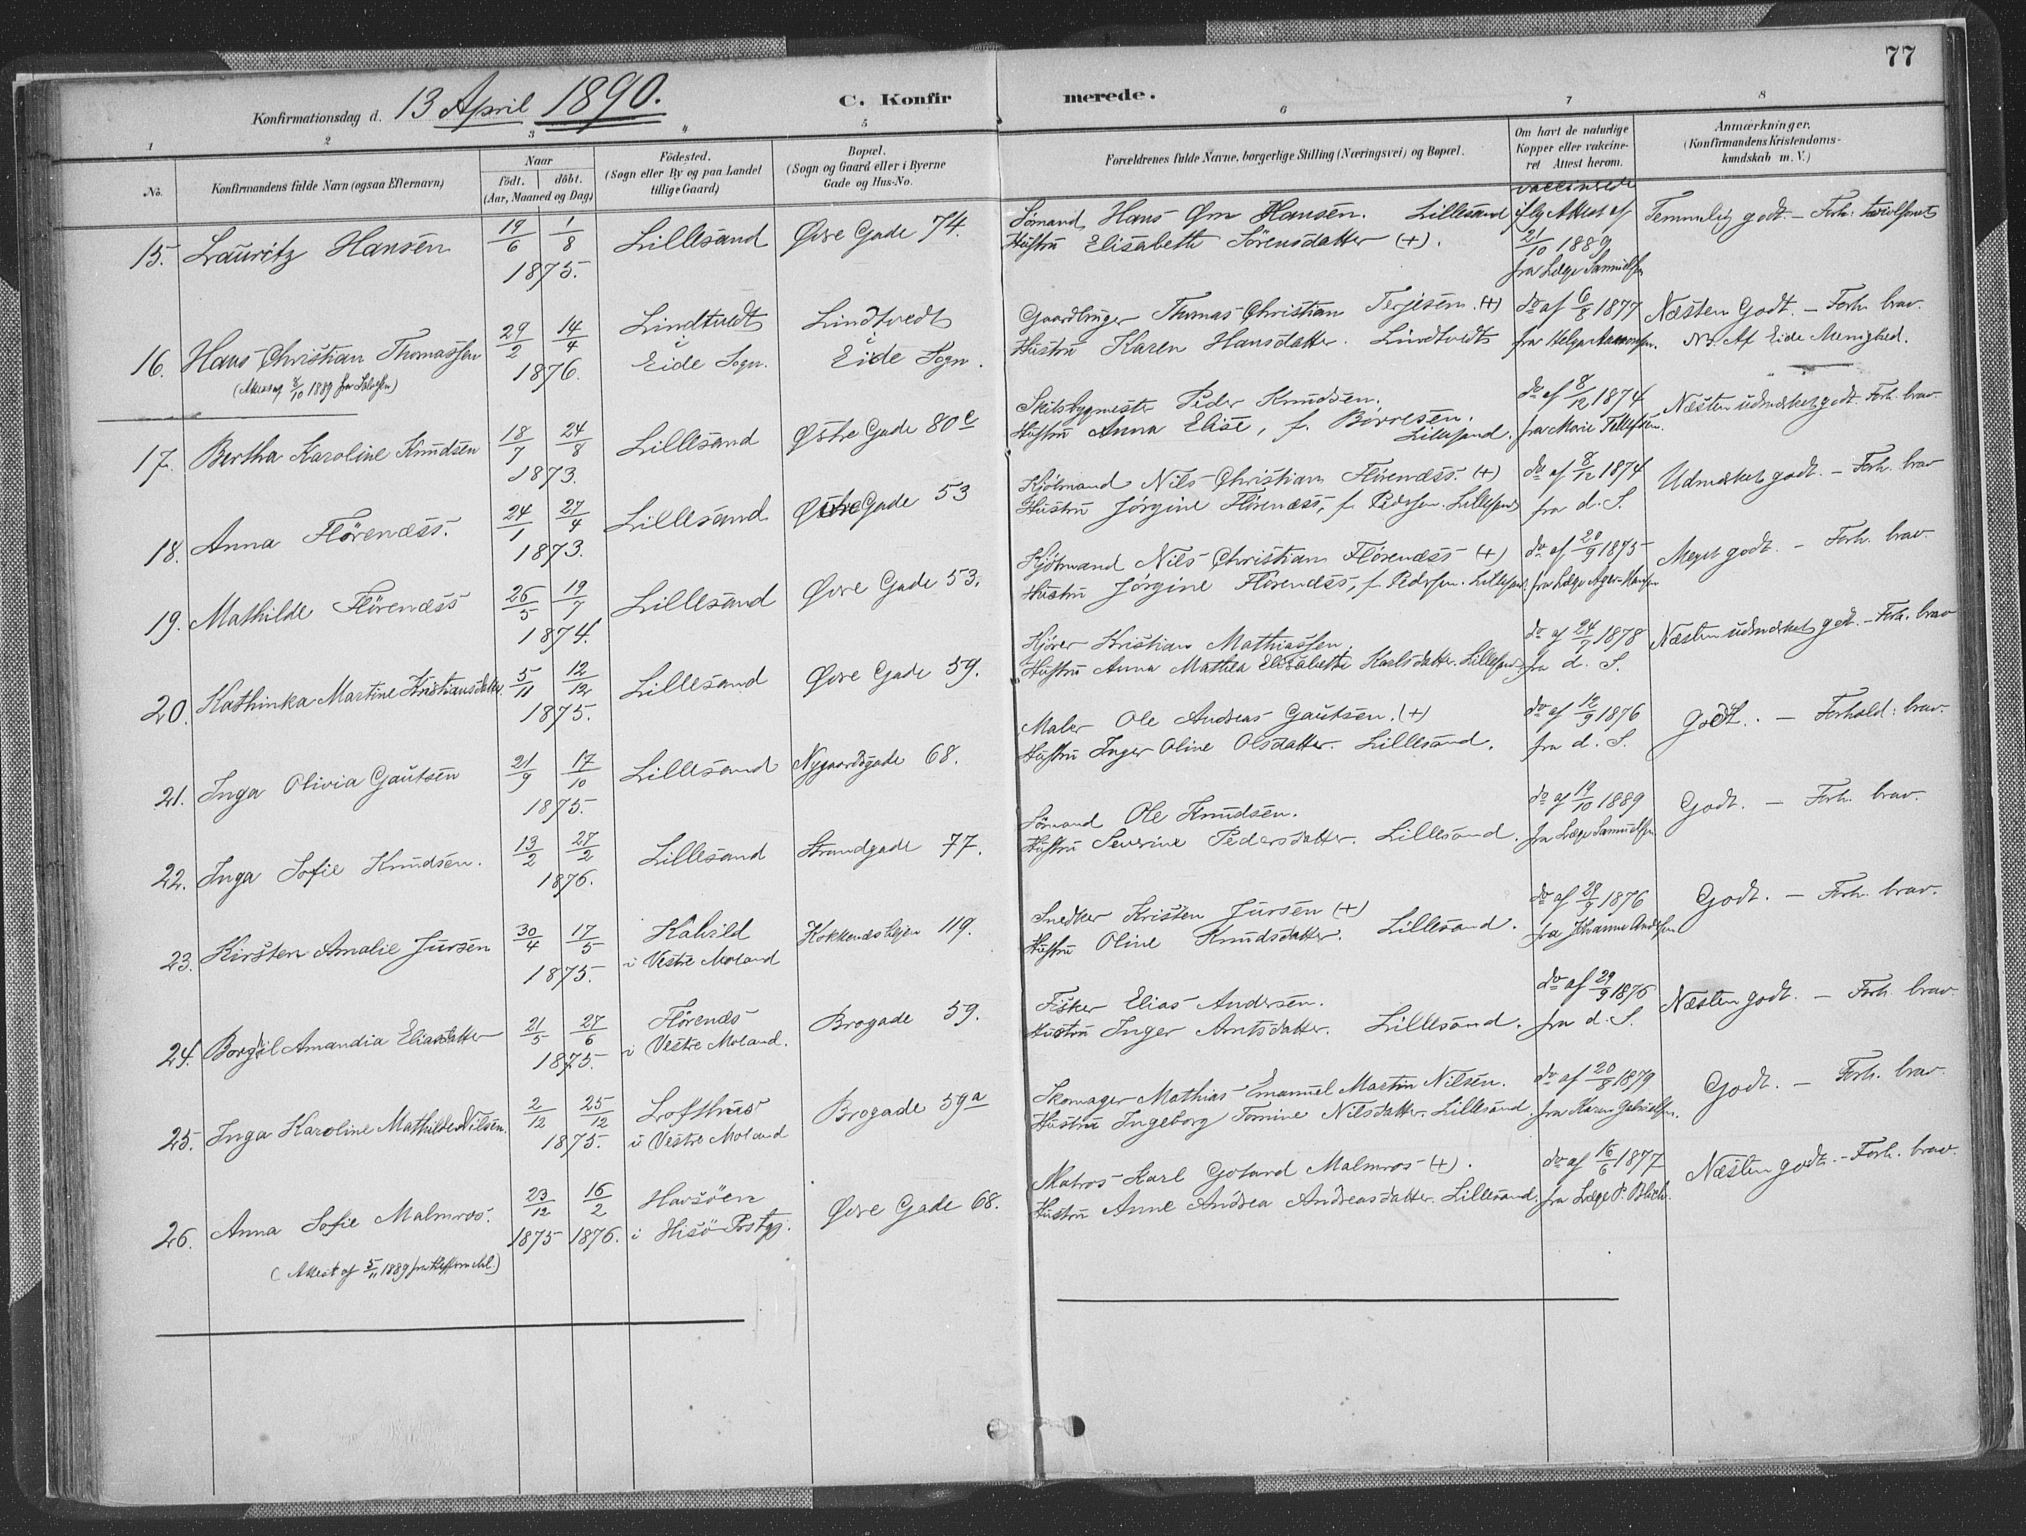 77
Konfirmationsdag d. 13 April 1890. C. Konfir merede.
1 2 3 4 5 6 7 8
No. Konfirmandens fulde Navn (ogsaa Efternavn) Naar födt. döbt. (Aar, Maaned og Dag) Födested. (Sogn eller By og paa Landet tillige Gaard) Bopæl. (Sogn og Gaard eller i Byerne Gade og Hus-No. Forældrenes fulde Navne, borgerlige Stilling (Næringsvei) og Bopæl. Om havt de naturlige Kopper eller vakcineret Attest herom. Anmærkninger. (Konfirmandens Kristendomskundskab m. V.)
15. Lauritz Hansen 19/6 1/8 1875. Lillesand Øvre Gade 74.
Sömand Hans Hansen. Lillesand
Hustru Elisabeth Sörensdatter (+).
vaccinerede ifg Attest af 21/10 1889 fra Læge Samuelsen
Temmelig godt. – Forh.
16. Hans Christian Thomassen 29/2 14/4 1876. Lindtvedt i Eide Sogn. Lindtvedt i Eide Sogn.
(Attest af 8/10 1889 fra)
Gaardbruger Thomas Christian Terjesen (+)
Hustru Karen Hansdatter. Lindtvedt
do af 6/8 1877 fra Helga
Næsten Godt. – Forh. brav.
Af Eide Menighed.
17. Bertha Karoline Knudsen 18/7 24/8 1873. Lillesand Østre Gade 80c
Skibsbygmester Peder Knudsen.
Hustru Anna Elise, f. Börresen. Lillesand.
do af 8/12 1874 fra Marie Tellefsen.
Næsten udmærket godt. Forh. brav
18. Anna Flörenæss. 24/1 27/4 1873. Lillesand Gade 53
Kjöbmand Nils Christian Flörenæss. (+)
Hustru Jörgine Flörenæss, f. Pedersen. Lillesand
do af 8/12 1874 fra d. S.
Udmærket godt. – Forh. brav
19. Mathilde Flörenæss 26/5 19/7 1874. Lillesand Øvre Gade 53.
Kjöbmand Nils Christian Flörenæss (+)
Hustru Jörgine Flörenæss, f. Pedersen. Lillesand
do af 20/9 1875 fra Læge
Meget godt. – Forh. brav.
20. Kathinka Martine Kristiansdatter. 5/11 12/12 1875. Lillesand Øvre Gade 59.
Kjörer Kristian Mathiassen
Hustru Anna Mathea Elisabeth Karlsdatter. Lillesand
do af 24/7 1878 fra d. S.
Næsten udmærket godt. – Forh. brav
21. Inga Olivia Gautsen 21/9 17/10 1875. Lillesand Nygaardsgade 68.
Maler Ole Andreas Gautsen. (+)
Hustru Inger Oline Olsdatter. Lillesand.
do af 12/9 1876 fra d. S.
Godt. – Forhold: brav.
22. Inga Sofie Knudsen. 13/2 27/2 1876. Lillesand Strandgade 77.
Sömand Ole Knudsen.
Hustru Severine Pedersdatter. Lillesand.
do af 19/10 1889 fra Læge Samuelsen
Godt. – Forh. brav.
23. Kirsten Amalie Jursen 30/4 17/5 1875. Kalvild i Vestre Moland 119.
Snedker Kristen Jursen (+)
Hustru Oline Knudsdatter. Lillesand.
do af 29/9 1876 fra Johanne Andersen
Godt. – Forh. brav.
24. Borghil Amandia Eliasdatter 21/5 27/6 1875. Flörenæs i Vestre Moland. Brogade 59.
Fisker Elias Andersen.
Hustru Inger Arntsdatter. Lillesand.
do af 29/9 1876 fra d. S.
Næsten godt. – Forh. brav.
25. Inga Karoline Mathilde Nilsen. 2/12 25/12 1875. Lofthus i Vestre Moland Brogade 59a
Skomager Mathias Emanuel Martin Nilsen.
Hustru Ingeborg Tomine Nilsdatter. Lillesand.
do af 20/8 1879 fra Karen Gabrielsen.
Godt. – Forh. brav.
26. Anna Sofie Malmros. 23/12 1875 16/2 1876. Havsöen i Hisö Præstgj. Øvre Gade 68.
(Attest af 5/11 1889 fra)
Matros Karl Gotard Malmros (+).
Hustru Anne Andrea Andreasdatter. Lillesand.
do af 16/6 1877 fra Læge P. Blich.
Næsten godt. – Forh. brav.